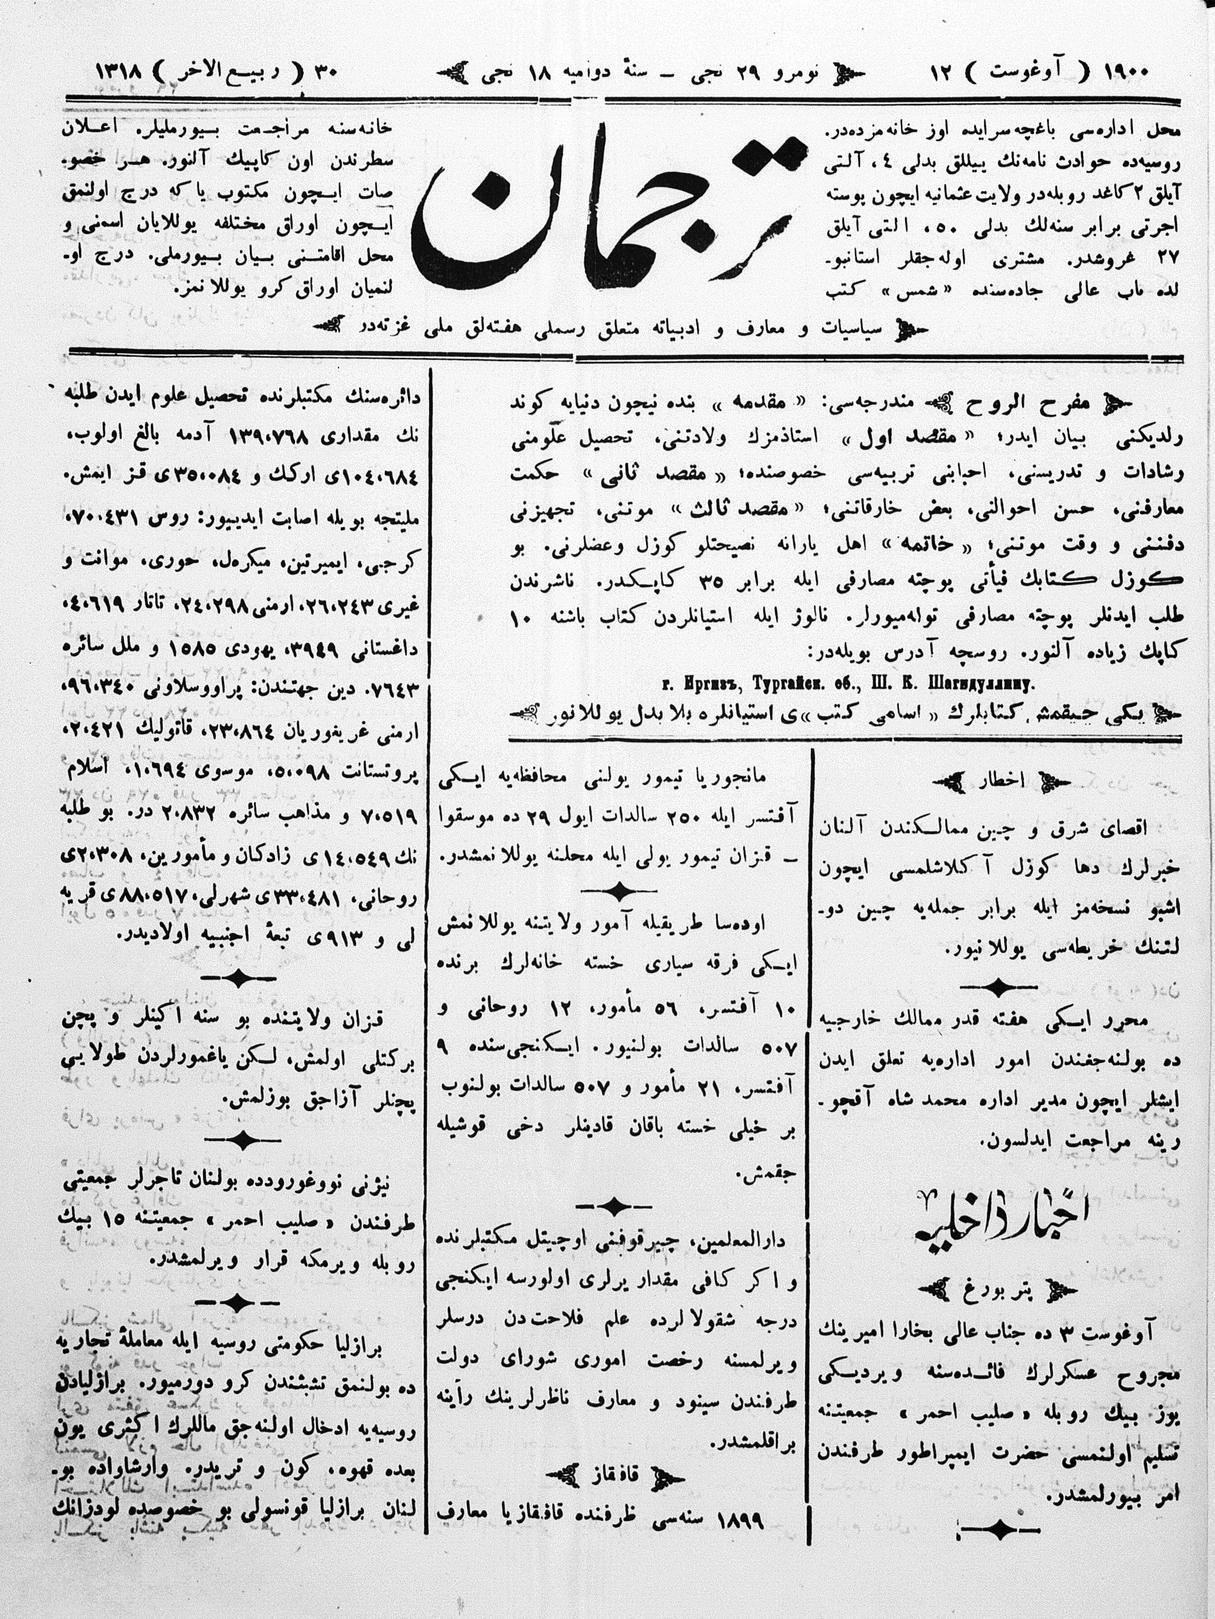 ١٩٠٠ ( آوغوست ) ١٢
نومرو ٢٩ نجی – سنهٔ دوامیه ١٨ نجی
٣٠ ( ربیع الاخر ) ١٣١٨
محل اداره‌سی باغچه‌سرایده اوز خانه مزده‌در.
روسیه‌ده حوادث نامه‌نك ییللق بدلی ٤، آلتی
آیلق ٢ كاغد روبله‌در ولایت عثمانیه ایچون پوسته
اجرتی برابر سنه‌لك بدلی ٥٠، التی آیلق
٢٧ غروشدر. مشتری اوله‌جقلر استانبو-
لده باب عالی جاده‌سنده «شمس» كتب
ترجمان
خانه‌سنه مراجعت بیورملیلر. اعلان
سطرندن اون كاپیك آلنور. هر خصو-
صات ایچون مكتوب یا كه درج اولنمق
ایچون اوراق مختلفه یوللایان اسمنی و
محل اقامتنی بیان بیورملی. درج او-
لنمیان اوراق كرو یوللانمز.
سیاسیات و معارف و ادبیاته متعلق رسملی هفته‌لق ملی غزته‌در
مفرح الروح مندرجه‌سی: «مقدمه» بنده نیچون دنیایه كوند
رلدیكنی بیان ایدر؛ «مقصد اول» استاذمزك ولادتنی، تحصیل علومنی
رشادات و تدریسنی، احبابنی تربیه‌سی خصوصنده؛ «مقصد ثانی» حكمت
معارفنی، حسن احوالنی، بعض خارقاتنی؛ «مقصد ثالث» موتنی، تجهیزنی
دفننی و وقت موتنی؛ «خاتمه» اهل یارانه نصیحتلو كوزل وعضلرنی. بو
كوزل كتابك فیأتی پوچته مصارفی ایله برابر ٣٥ كاپكدر. ناشرندن
طلب ایدنلر پوچته مصارفی تولەمیورلر. نالوژ ایله استیانلردن كتاب باشنه ١٠
كاپك زیاده آلنور. روسچه آدرس بویله‌در:
г. Иргизъ, Тургайск. об., Ш. К. Шагидуллину.
یكی چیقمش كتابلرك «اسامی كتب»ی استیانلره بلا بدل یوللانور
اخطار
اقصای شرق و چین ممالكندن آلنان
خبرلرك دها كوزل آكلاشلمسی ایچون
اشبو نسخه‌مز ایله برابر جمله‌یه چین دو-
لتنك خریطه‌سی یوللانیور.
محرر ایكی هفته قدر ممالك خارجیه
ده بولنه‌جغندن امور اداره‌یه تعلق ایدن
ایشلر ایچون مدیر اداره محمد شاه آقچو-
رینه مراجعت ایدلسون.
اخبار داخلیه
پتربورغ
آوغوست ٣ ده جناب عالی بخارا امیرینك
مجروح عسكرلرك فائده‌سنه ویردیكی
یوز بیك روبله «صلیب احمر» جمعیتنه
تسلیم اولنمسی حضرت ایمپراطور طرفندن
امر بیورلمشدر.
مانجوریا تیمور یولنی محافظه‌یه ایكی
آفتسر ایله ٢٥٠ سالدات ایول ٢٩ ده موسقوا
– قزان تیمور یولی ایله محلنه یوللانمشدر.
اوده‌سا طریقیله آمور ولایتنه یوللانمش
ایكی فرقه سیاری خسته خانه‌لرك برنده
١٠ آفتسر، ٥٦ مأمور، ١٢ روحانی و
٥٠٧ سالدات بولنیور. ایكنجی‌سنده ٩
آفتسر، ٢١ مأمور و ٥٠٧ سالدات بولنوب
بر خیلی خسته باقان قادینلر دخی قوشیله
جقمش.
دارالمعلمین، چیرقوفنی اوچیتل مكتبلرنده
و اكر كافی مقدار یرلری اولورسه ایكنجی
درجه شقولالرده علم فلاحت‌دن درسلر
ویرلمسنه رخصت اموری شورای دولت
طرفندن سینود و معارف ناظرلرینك رأینه
براقلمشدر.
قافقاز
١٨٩٩ سنه‌سی ظرفنده قافقازیا معارف
دائره‌سنك مكتبلرنده تحصیل علوم ایدن طلبه
نك مقداری ١٣٩،٧٦٨ آدمه بالغ اولوب،
١٠٤،٦٨٤ی اركك و ٣٥،٠٨٤ی قز ایمش.
ملیتجه بویله اصابت ایدییور: روس ٧٠،٤٣١،
كرجی، ایمیرتین، میكرەل، حوری، موانت و
غیری ٢٦،٢٤٣، ارمنی ٢٤،٢٩٨، تاتار ٤،٦١٩،
داغستانی ٣٩٤٩، یهودی ١٥٨٥ و ملل سائره
٧٦٤٣. دین جهتندن: پراووسلاونی ٩٦،٣٤٠،
ارمنی غریغوریان ٢٣،٨٦٤، قاتولیك ٢،٤٢١،
پروتستانت ٥،٠٩٨، موسوی ١،٦٩٤، اسلام
٧،٥١٩ و مذاهب سائره ٢،٨٣٢ در. بو طلبه
نك ١٤،٥٤٩ی زادكان و مأمورین، ٢،٣٠٨ی
روحانی، ٣٣،٤٨١ی شهرلی، ٨٨،٥١٧ی قریه
لی و ٩١٣ی تبعهٔ اجنبیه اولادیدر.
قزان ولایتنده بو سنه اكینلر و پچن
بركتلی اولمش، لكن یاغمورلردن طولایی
پچنلر آزاجق بوزلمش.
نیژنی نووغورودده بولنان تاجرلر جمعیتی
طرفندن «صلیب احمر» جمعیتنه ١٥ بیك
روبله ویرمكه قرار ویرلمشدر.
برازلیا حكومتی روسیه ایله معاملهٔ تجاریه
ده بولنمق تشبثندن كرو دورمیور. برازلیادن
روسیه‌یه ادخال اولنه‌جق ماللرك اكثری یون
بعده قهوه، كون و تریدر. وارشاواده بو-
لنان برازلیا قونسولی بو خصوصده لودزانك